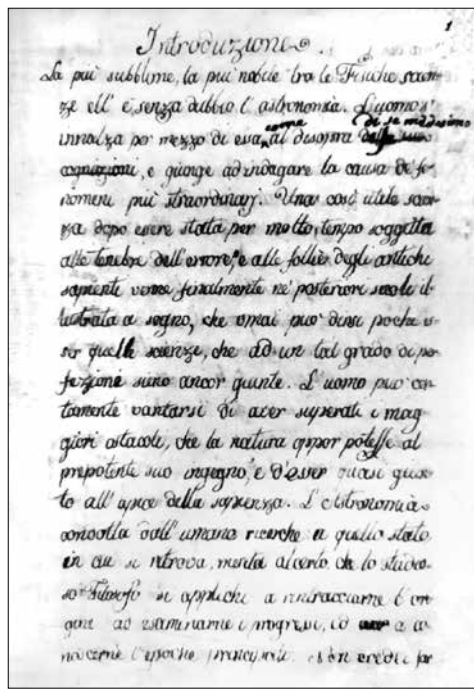 1
Introduzione.
La più subblime, la più nobile tra le Fisiche scien-
ze ell' è senza dubbio l'astronomia. L'uomo s'
innalza per mezzo di essa, come al disopra di se medesimo
cognizioni, e giunge ad indagare la causa de' fe-
nomeni più straordinarj. Una così utile scien-
za dopo essere stata per molto tempo soggetta
alle tenebre dell'errore, e alle follie degli antichi
sapienti venne finalmente ne' posteriori secoli il-
lustrata a segno, che omai può dirsi poche es-
ser quelle scienze, che ad un tal grado di per-
fezione siano ancor giunte. L'uomo può cer-
tamente vantarsi di aver superati i mag-
giori ostacoli, che la natura oppor potesse al
prepotente suo ingegno, e d'esser quasi giun-
to all'apice della sapienza. L'Astronomia
condotta dall'umane ricerche a quello stato,
in cui si ritrova, merita al certo che lo studio-
so Filosofo si applichi a rintracciarne l'ori-
gine ad esaminarne i progressi, ed a co-
noscerne l'epoche principali.